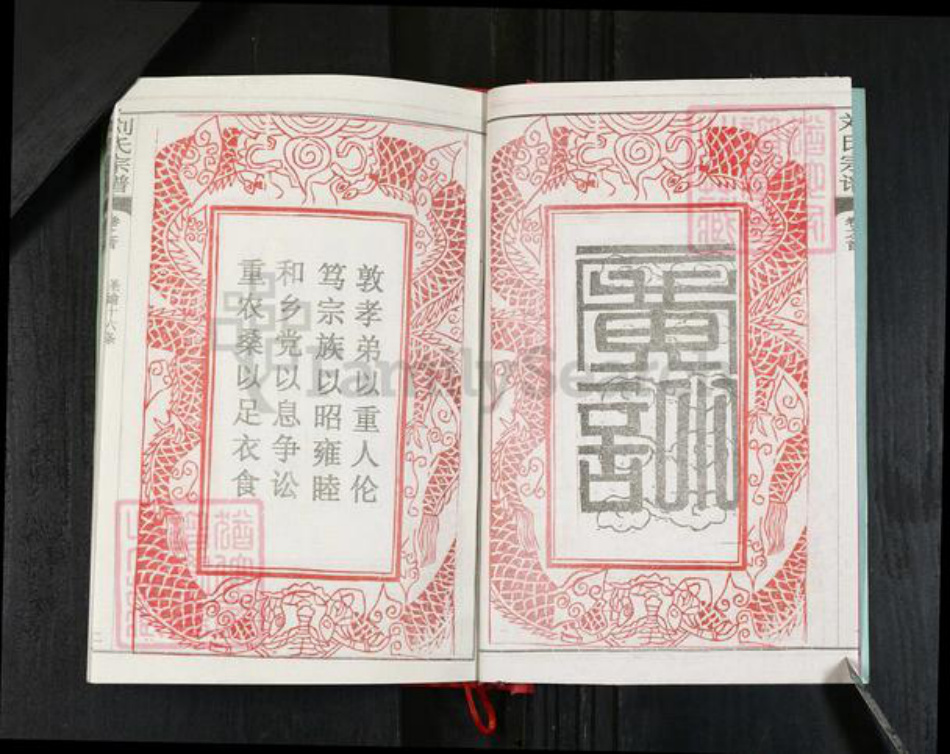 刘氏宗谱
卷之首
敦孝弟以重人伦
笃宗族以昭雍睦
和乡党以息争讼
重农桑以足衣食
刘氏宗谱
卷之首
圣谕十六条
二
FamilySearch